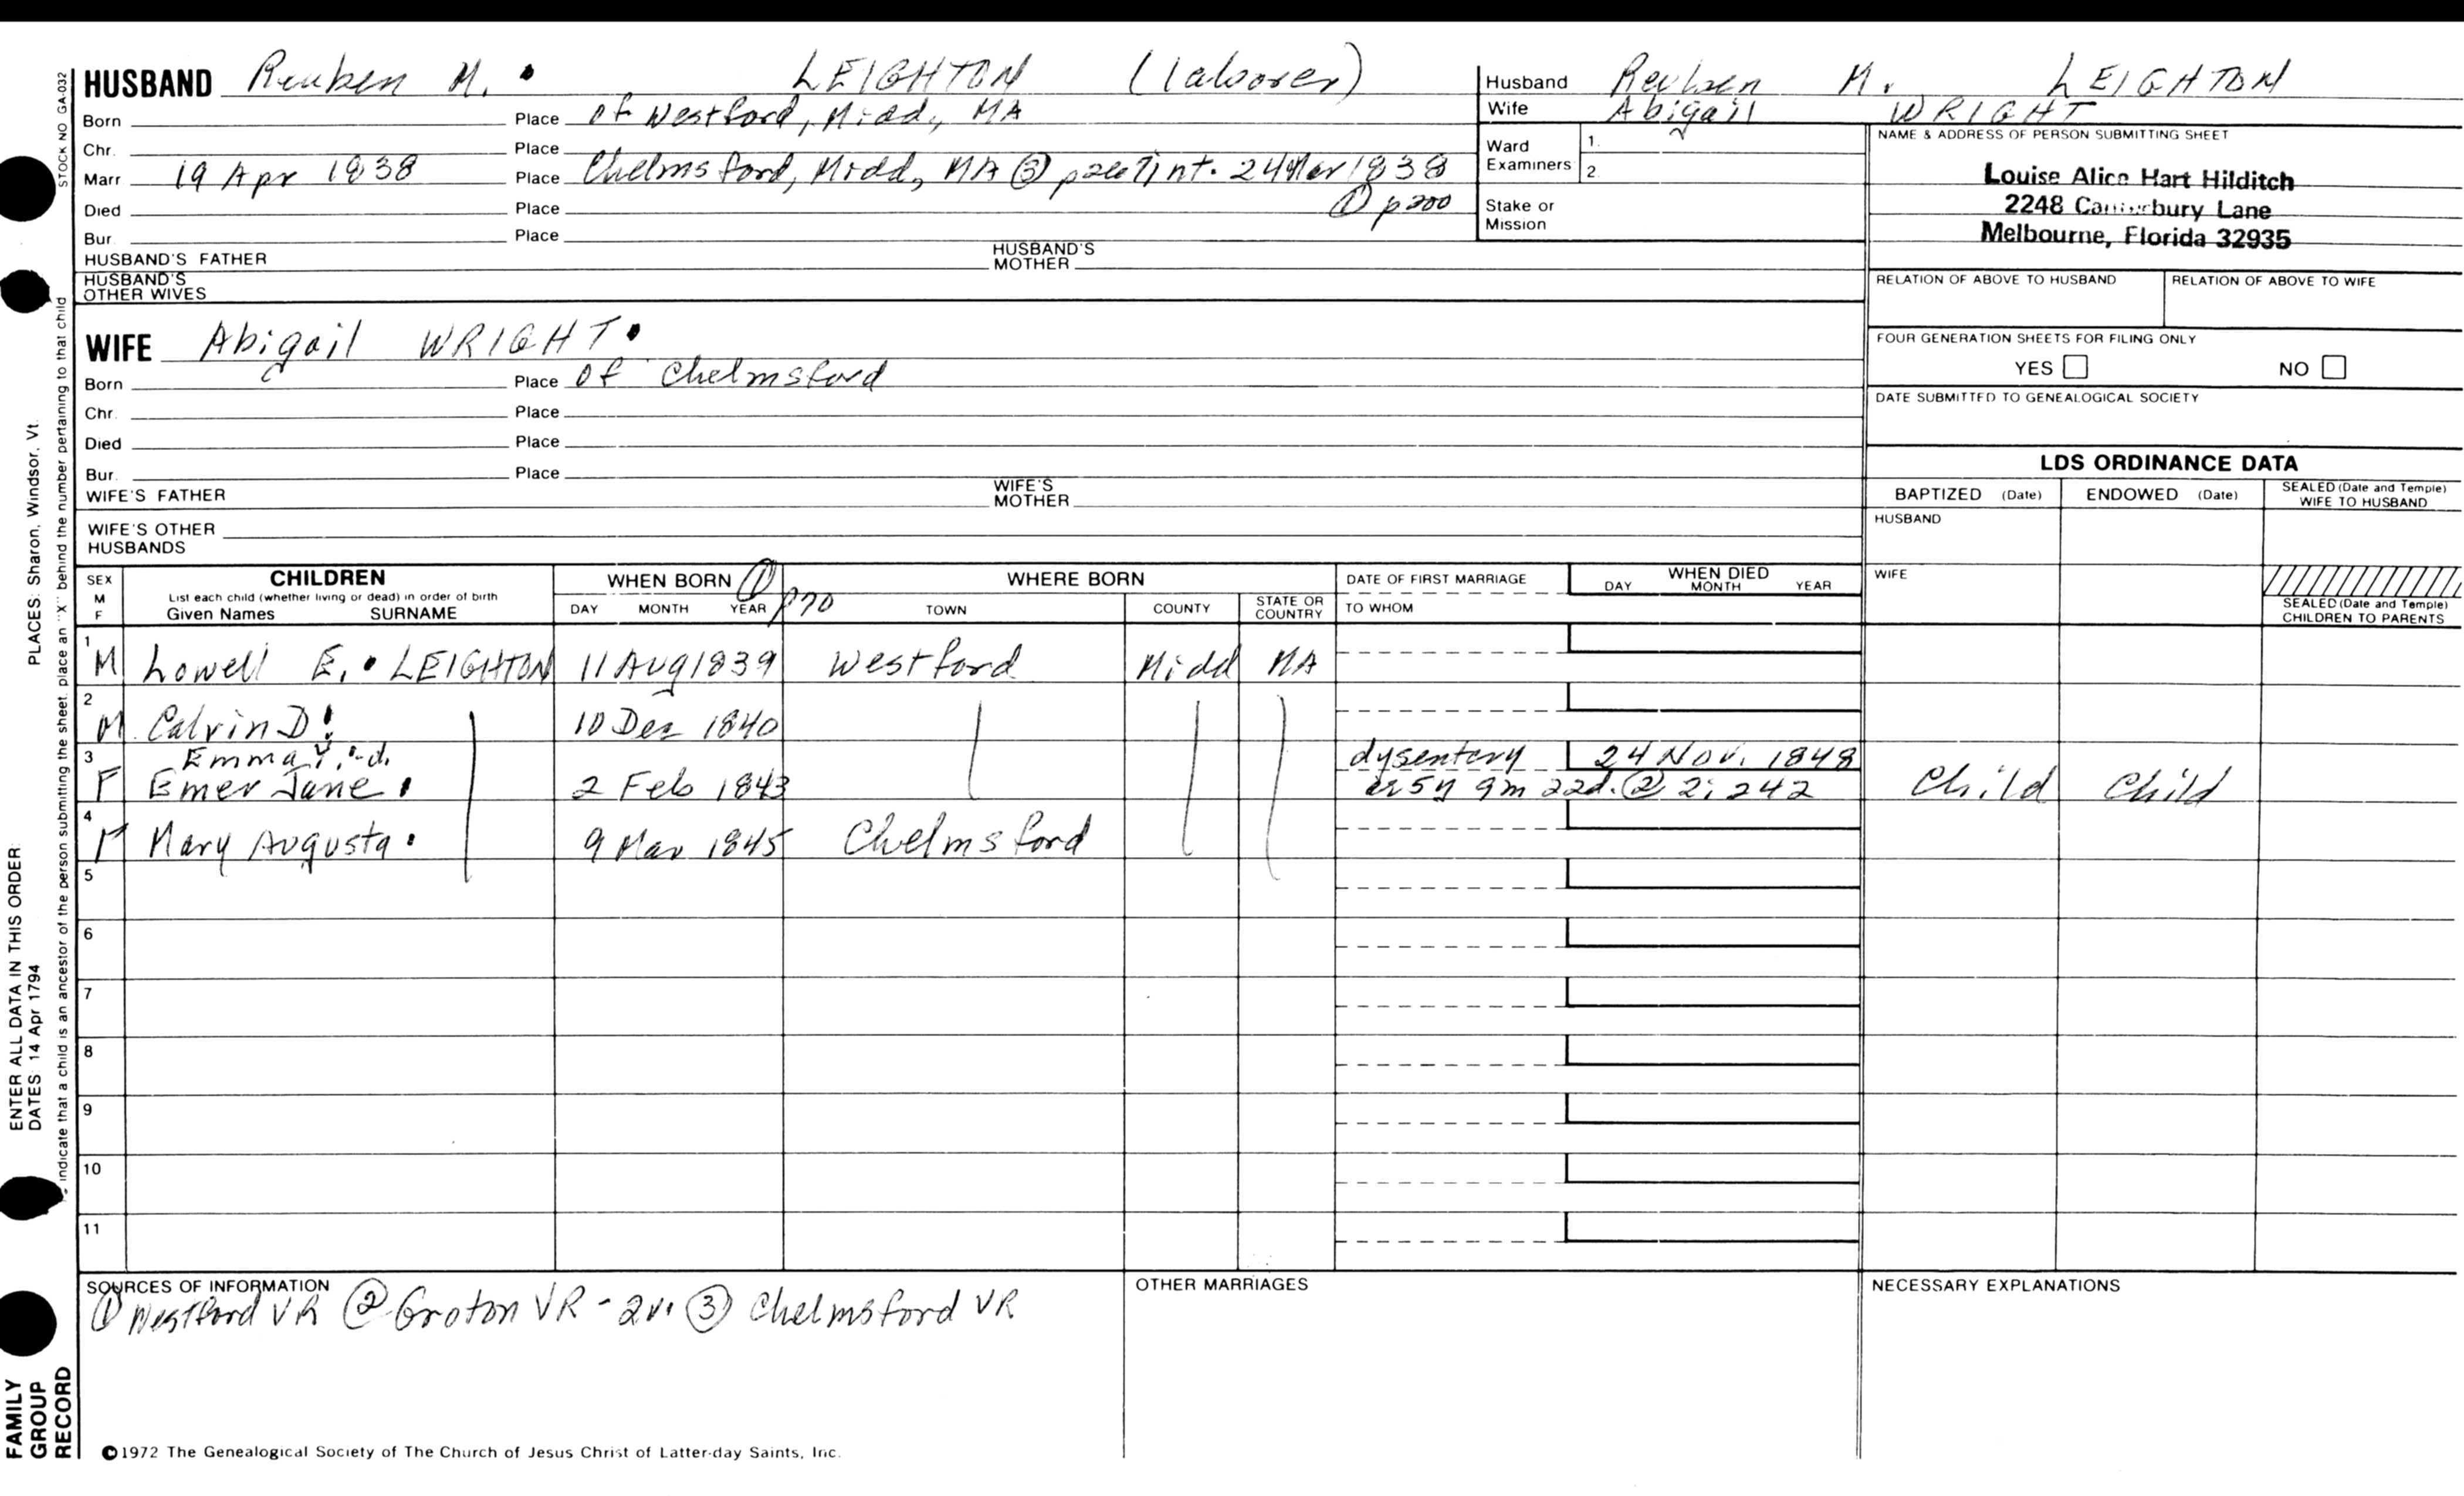 HUSBAND Reuben M. LEIGHTON (laborer)
Born Place of Westford, Midd, MA
Chr. Place
Marr 19 Apr 1838 Place Chelmsford, Midd, MA ③ int. 24 Mar 1838
Died Place ① p200
Bur. Place
HUSBAND'S FATHER HUSBAND'S MOTHER
HUSBAND'S OTHER WIVES
Husband Reuben M. LEIGHTON
Wife Abigail WRIGHT
Ward Examiners 1. 2.
Stake or Mission
NAME & ADDRESS OF PERSON SUBMITTING SHEET
Louise Alice Hart Hilditch
2248 Lane
Melbourne, Florida 32935
RELATION OF ABOVE TO HUSBAND RELATION OF ABOVE TO WIFE
FOUR GENERATION SHEETS FOR FILING ONLY
YES NO
DATE SUBMITTED TO GENEALOGICAL SOCIETY
WIFE Abigail WRIGHT
Born Place of Chelmsford
Chr. Place
Died Place
Bur. Place
WIFE'S FATHER WIFE'S MOTHER
WIFE'S OTHER HUSBANDS
LDS ORDINANCE DATA
BAPTIZED (Date) ENDOWED (Date) SEALED (Date and Temple) WIFE TO HUSBAND
HUSBAND
WIFE
SEALED (Date and Temple) CHILDREN TO PARENTS
SEX M F
CHILDREN
List each child (whether living or dead) in order of birth
Given Names SURNAME
WHEN BORN ① p70
DAY MONTH YEAR
WHERE BORN
TOWN COUNTY STATE OR COUNTRY
DATE OF FIRST MARRIAGE
TO WHOM
WHEN DIED
DAY MONTH YEAR
1 M Lowell E. LEIGHTON 11 Aug 1839 Westford Midd MA
2 M Calvin D. 10 Dec 1840
3 Emma dysentery 24 Nov. 1848
F Emer Jane 2 Feb 1843 5y 9m 22d. ② 2:242 Child Child
4 F Mary Augusta 9 Mar 1845 Chelmsford
5
6
7
8
9
10
11
SOURCES OF INFORMATION
① Westford VR ② Groton VR - 2v. ③ Chelmsford VR
OTHER MARRIAGES
NECESSARY EXPLANATIONS
©1972 The Genealogical Society of The Church of Jesus Christ of Latter-day Saints, Inc.
STOCK NO GA-032
PLACES: Sharon, Windsor, Vt.
ENTER ALL DATA IN THIS ORDER:
DATES: 14 Apr 1794
indicate that a child is an ancestor of the person submitting the sheet, place an "X" behind the number pertaining to that child
FAMILY
GROUP
RECORD